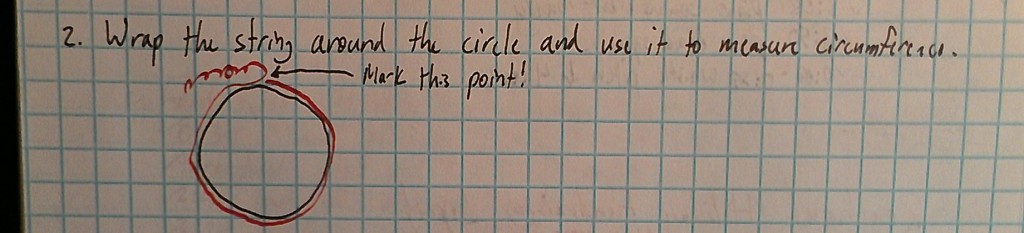 2. Wrap the string around the circle and use it to measure circumference.
Mark this point!